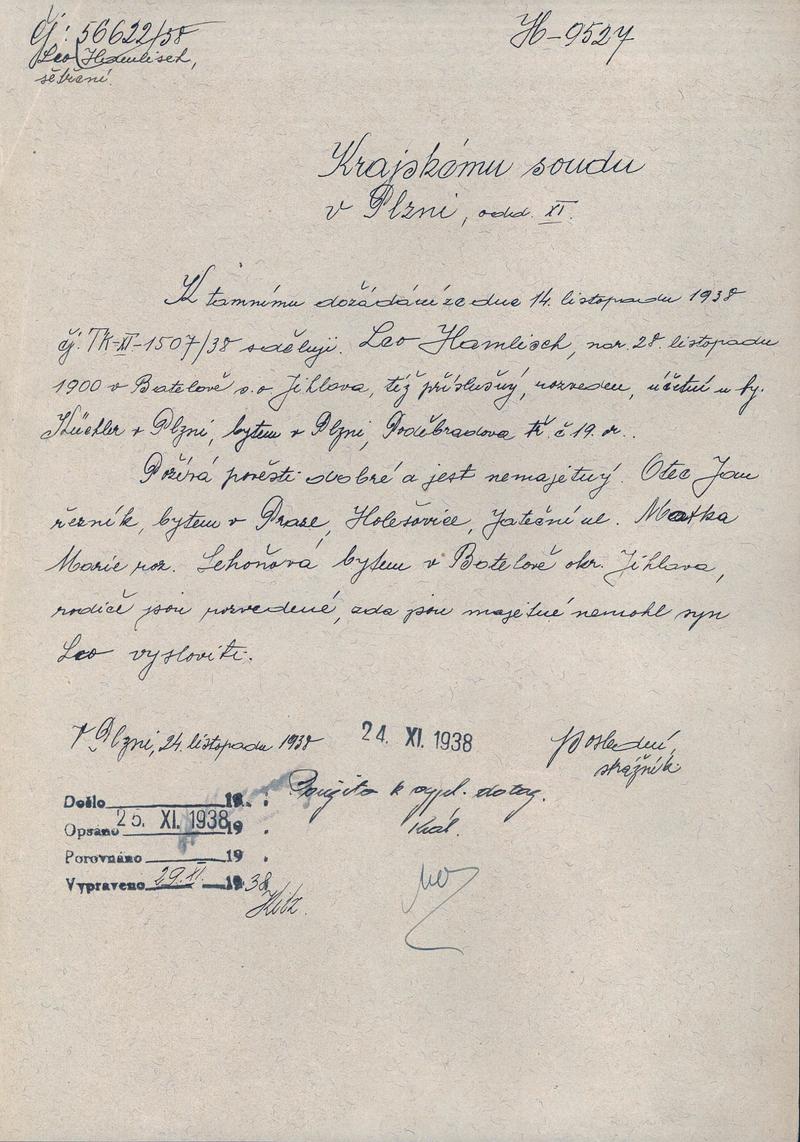 Čj: 56622/38
H-9527
Leo Hamlisch,
šetření.
Krajskému soudu
v Plzni, odd. XI.
K tamnímu dožádání ze dne 14. listopadu 1938
čj. Tk-XI-1507/38 sděluji. Leo Hamlisch, nar. 28. listopadu
1900 v Batelově s.o. Jihlava, též příslušný, rozveden, účetní u fy.
Küchler v Plzni, bytem v Plzni, Poděbradova tř. č 19. 
Požívá pověsti dobré a jest nemajetný. Otec Jan
řezník, bytem v Praze, Holešovice, Jateční ul. Matka
Marie roz. Lehoňová bytem v Batelově okr. Jihlava,
rodiče jsou rozvedené, zda jsou majetné nemohl syn
Leo vysloviti.
V Plzni, 24. listopadu 1938
24. XI. 1938
Poslední,
strážník.
Došlo 19 .
Použito k vypl. dotaz.
Opsáno 25. XI. 1938 19 .
Porovnáno 19 .
Vypraveno 29.XI. 1938